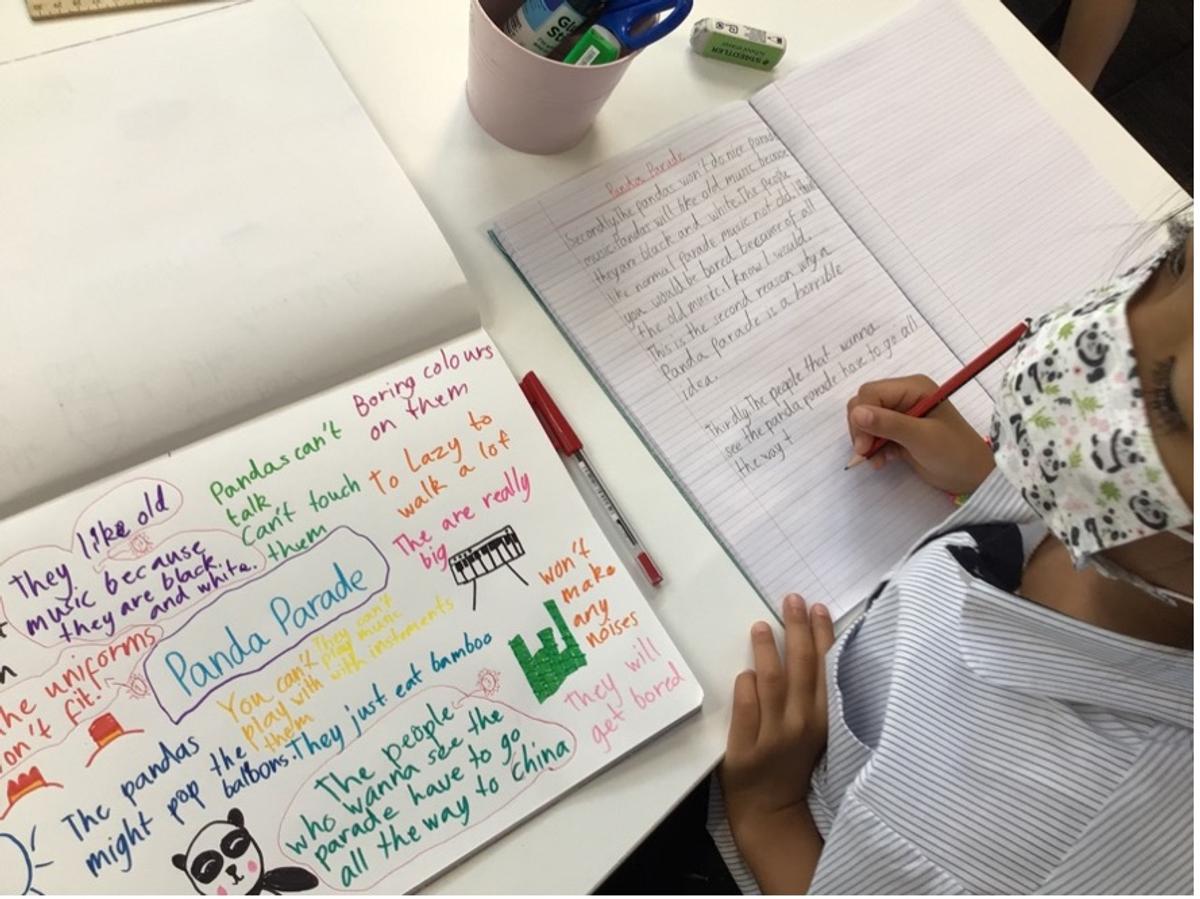 Boring colours
on them
Pandas can't
talk
Can't touch
them
To Lazy to
walk a lot
The are really
big
like old
They
music because
they are black
and white.
Panda Parade
won't
make
any
noises
They can't
play music
with instements
You can't
play with
them
the uniforms
won't fit!
They just eat bamboo
They will
get bored
The pandas
might pop the
balloons.
The people
who wanna see the
parade have to go
all the way to China
STAEDTLER
Panda Parade
Secondly,The pandas won't do nice parade
music.Pandas will like old music because
they are black and white.The people
like normal parade music not old. I think
you would be bored because of all
the old music. I know I would.
This is the second reason why a
Panda Parade is a horrible
idea.
Thirdly,The people that wanna
see the panda parade have to go all
the way t